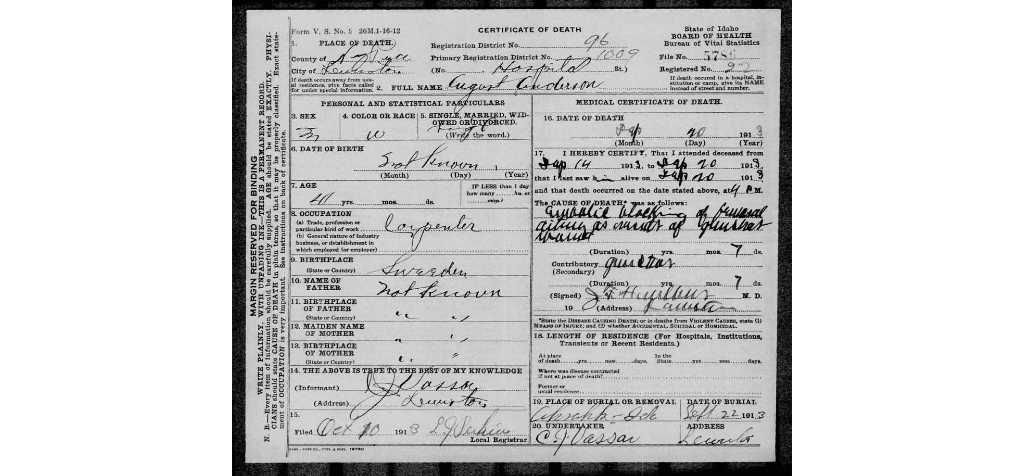 Form V. S. No. 5 20M.1-16-12
CERTIFICATE OF DEATH
State of Idaho
BOARD OF HEALTH
Bureau of Vital Statistics
1. PLACE OF DEATH.
County of
City of Lewiston
If death occurs away from usual residence, give facts called for under special information.
Registration District No. 96
Primary Registration District No. 1009
(No. Hospital St.)
File No.
Registered No. 22
If death occurred in a hospital, institution or camp, give its NAME instead of street and number.
2. FULL NAME August Anderson
PERSONAL AND STATISTICAL PARTICULARS
3. SEX
M
4. COLOR OR RACE
W
5. SINGLE, MARRIED, WIDOWED OR DIVORCED.
Single
(Write the word.)
6. DATE OF BIRTH
Not Known 1
(Month) (Day) (Year)
7. AGE
41 yrs. mos. ds.
IF LESS than 1 day how many hrs. or min.?
8. OCCUPATION
(a) Trade, profession or particular kind of work
(b) General nature of industry business, or establishment in which employed (or employer)
Carpenter
9. BIRTHPLACE
(State or Country)
Sweeden
10. NAME OF FATHER
Not Known
11. BIRTHPLACE OF FATHER
(State or Country)
" "
12. MAIDEN NAME OF MOTHER
" "
13. BIRTHPLACE OF MOTHER
(State or Country)
" "
14. THE ABOVE IS TRUE TO THE BEST OF MY KNOWLEDGE
(Informant) C J Vassar
(Address) Lewiston
15.
Filed Oct 10 1913 Local Registrar
MEDICAL CERTIFICATE OF DEATH.
16. DATE OF DEATH
Sep 20 1913
(Month) (Day) (Year)
17. I HEREBY CERTIFY, That I attended deceased from
Sep 14 1913, to Sep 20 1913
that I last saw him alive on Sep 20 1913
and that death occurred on the date stated above, at 4 P M.
The CAUSE OF DEATH* was as follows:
blocking of
as of
wound
(Duration) yrs. mos. 7 ds.
Contributory
(Secondary)
(Duration) yrs. mos. 7 ds.
(Signed) M. D.
19 (Address) Lewiston
*State the DISEASE CAUSING DEATH; or in deaths from VIOLENT CAUSES, state (1) MEANS OF INJURY; and (2) whether ACCIDENTAL, SUICIDAL OR HOMICIDAL.
18. LENGTH OF RESIDENCE (For Hospitals, Institutions, Transients or Recent Residents.)
At place of death yrs. mos. days. In the State yrs. mos. days.
Where was disease contracted if not at place of death?
Former or usual residence
19. PLACE OF BURIAL OR REMOVAL
DATE OF BURIAL
Sept 22 1913
20. UNDERTAKER
C J Vassar
ADDRESS
Lewiston
MARGIN RESERVED FOR BINDING
WRITE PLAINLY, WITH UNFADING INK—THIS IS A PERMANENT RECORD.
N. B.—Every item of information should be carefully supplied. AGE should be stated EXACTLY. PHYSICIANS should state CAUSE OF DEATH in plain terms, so that it may be properly classified. Exact statement of OCCUPATION is very important. See instructions on back of certificate.